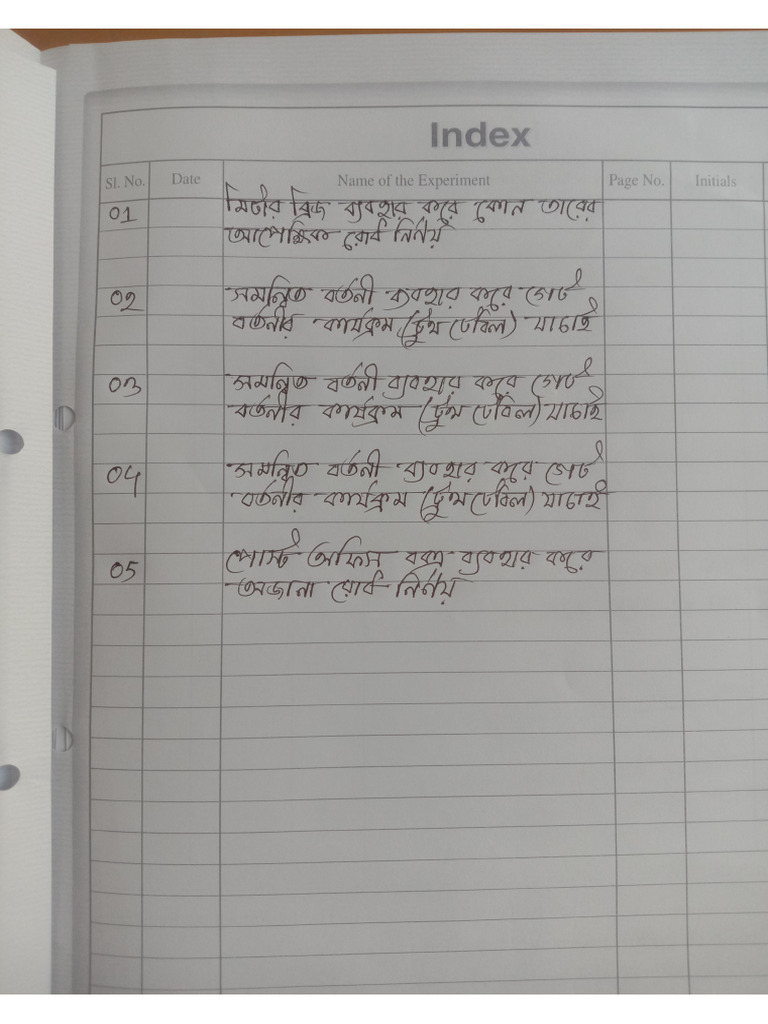 Index
Sl. No. Date Name of the Experiment Page No. Initials
01 মিটার ব্রিজ ব্যবহার করে কোন তারের
আপেক্ষিক রোধ নির্ণয়
02 সমন্বিত বর্তনী ব্যবহার করে গেট
বর্তনীর কার্যক্রম (ট্রুথ টেবিল) যাচাই
03 সমন্বিত বর্তনী ব্যবহার করে গেট
বর্তনীর কার্যক্রম (ট্রুথ টেবিল) যাচাই
04 সমন্বিত বর্তনী ব্যবহার করে গেট
বর্তনীর কার্যক্রম (ট্রুথ টেবিল) যাচাই
05 পোস্ট অফিস বক্স ব্যবহার করে
অজানা রোধ নির্ণয়